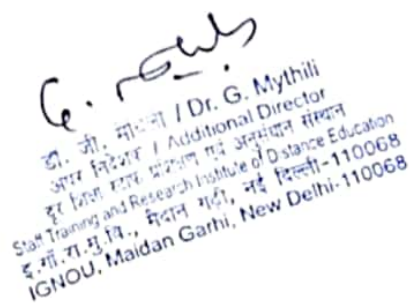 डॉ. जी. मैथिली / Dr. G. Mythili
अपर निदेशक / Additional Director
दूर शिक्षा स्टाफ प्रशिक्षण एवं अनुसंधान संस्थान
Staff Training and Research Institute of Distance Education
इ.गाँ.रा.मु.वि., मैदान गढ़ी, नई दिल्ली-110068
IGNOU, Maidan Garhi, New Delhi-110068